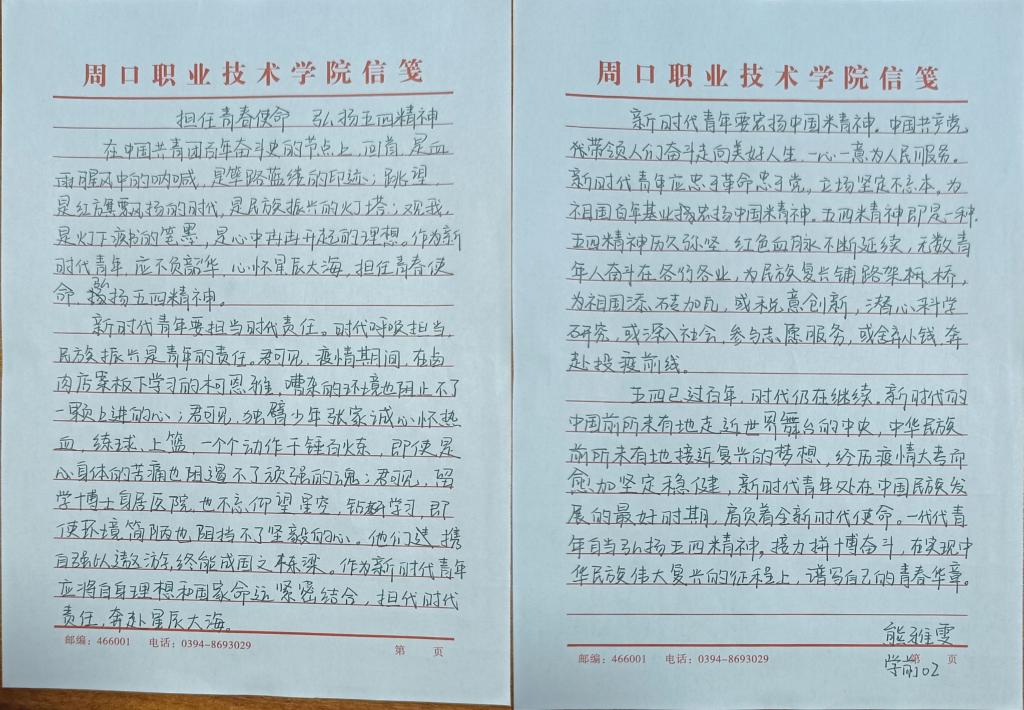 周口职业技术学院信笺
担任青春使命 弘扬五四精神
在中国共青团百年奋斗史的节点上,回首,是血
雨腥风中的呐喊,是筚路蓝缕的印迹;眺望,
是红旗飘扬的时代,是民族振兴的灯塔;观我,
是灯下读书的笔墨,是心中冉冉升起的理想。作为新
时代青年,应不负韶华,心怀星辰大海,担任青春使
命,弘扬五四精神。
新时代青年要担当时代责任。时代呼唤担当,
民族振兴是青年的责任。君可见,疫情期间,在卤
肉店案板下学习的柯恩雅,嘈杂的环境也阻止不了
一颗上进的心;君可见,独臂少年张家诚心怀热
血,练球、上篮,一个个动作千锤百炼,即使是
心身体的苦痛也阻遏不了顽强的魂;君可见,留
学博士身居医院,也不忘仰望星空,钻研学习,即
使环境简陋也阻挡不了坚毅的心。他们携
自强以遨游,终能成国之栋梁。作为新时代青年
应将自身理想和国家命运紧密结合,担代时代
责任,奔赴星辰大海。
邮编:466001 电话:0394-8693029 第 页
周口职业技术学院信笺
新时代青年要宏扬中国米精神。中国共产党
带领人们奋斗走向美好人生,一心一意为人民服务。
新时代青年应忠于革命忠于党,立场坚定不忘本。为
祖国百年基业宏扬中国米精神。五四米精神即是一种,
五四精神历久弥坚,红色血脉不断延续,无数青
年人奋斗在各行各业,为民族复兴铺路架桥,
为祖国添砖加瓦,或锐意创新,潜心科学
研究,或深入社会,参与志愿服务,或舍弃小钱,奔
赴投疫前线。
五四已过百年,时代仍在继续。新时代的
中国前所未有地走近世界舞台的中央,中华民族
前所未有地接近复兴的梦想,经历疫情大考而
愈加坚定稳健,新时代青年处在中国民族发
展的最好时期,肩负着全新时代使命。一代代青
年自当弘扬五四精神,接力拼博奋斗,在实现中
华民族伟大复兴的征程上,谱写自己的青春华章。
熊雅雯
邮编:466001 电话:0394-8693029 第 页
学前02